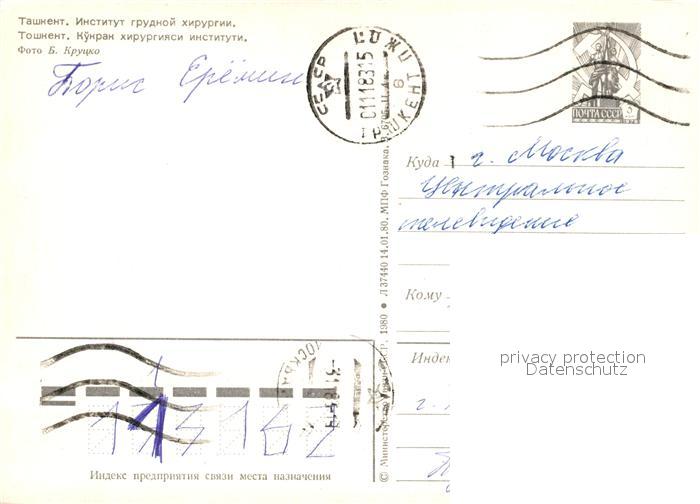 Ташкент. Институт грудной хирургии.
Тошкент. Кўкрак хирургияси институти.
Фото Б. Круцко
Борис Ерёмин
СССР
01118315
ПОЧТА СССР
Куда г. Москва
Центральное
телевидение
Кому
Индек
г.
© Министерство связи СССР, 1980 ● Л 37440 14.01.80. МПФ Гознака.
МОСКВА
113162
Индекс предприятия связи места назначения
privacy protection
Datenschutz